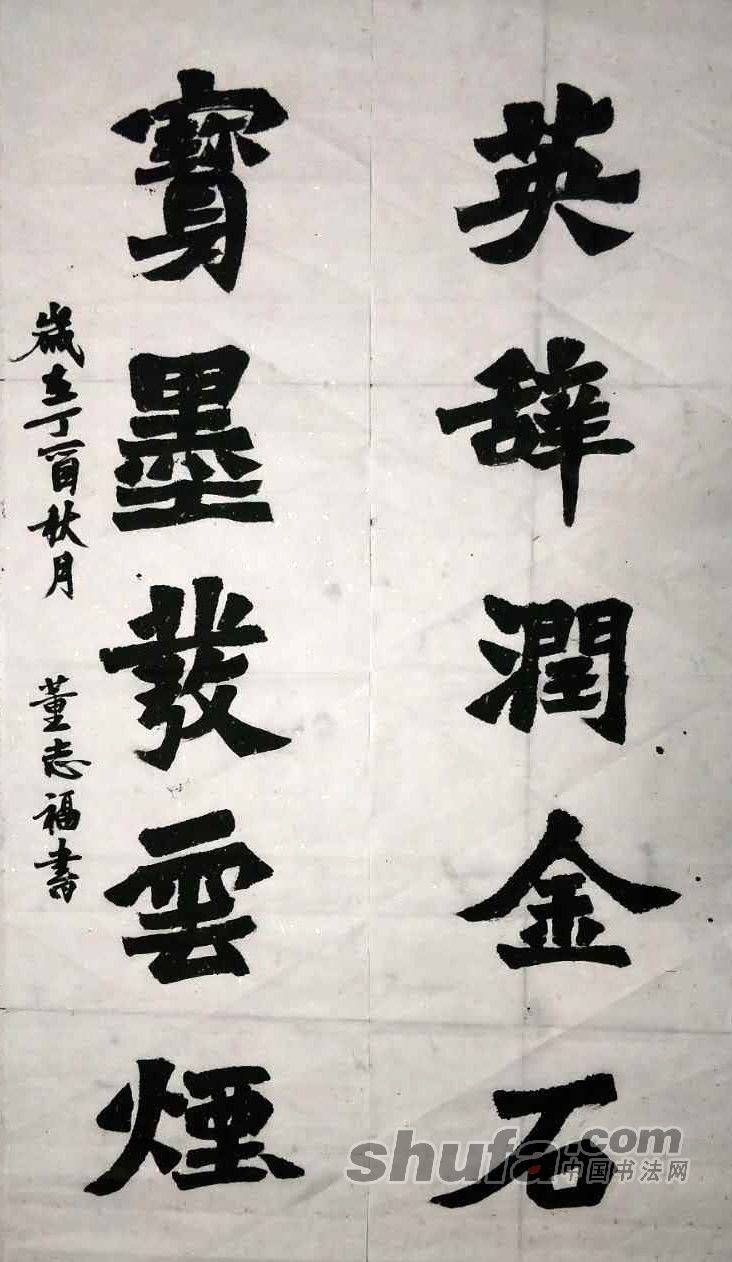 英辞潤金石
寶墨發雲煙
歲在丁酉秋月 董志福書
shufa.com
中国书法网